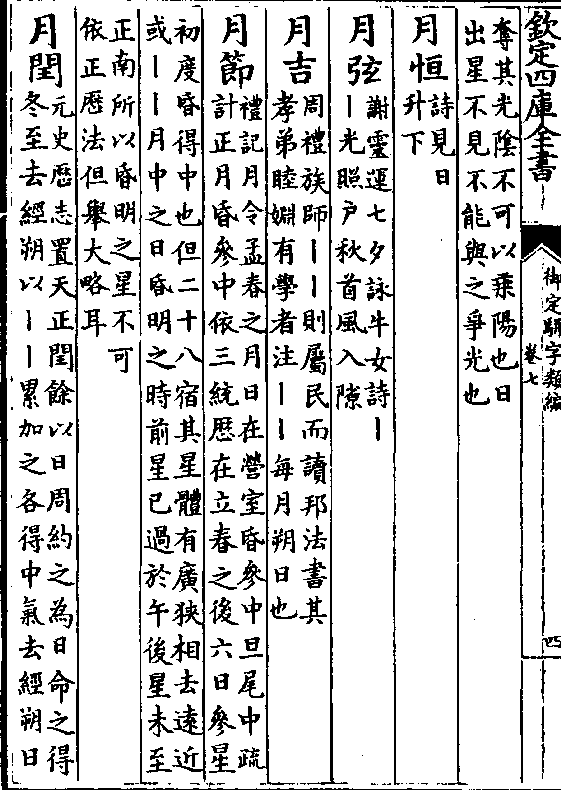 欽定四庫全書
御定駢字類編
卷七
四
奪其光陰不可以乗陽也日
出星不見不能與之爭光也
月恒
詩見日
升下
月弦
謝靈運七夕詠牛女詩丨
丨光照户秋首風入隙
月吉
周禮族師丨丨則屬民而讀邦法書其
孝弟睦婣有學者注丨丨每月朔日也
月節
禮記月令孟春之月日在營室昏參中旦尾中疏
計正月昏參中依三統厯在立春之後六日參星
初度昏得中也但二十八宿其星體有廣狹相去遠近
或丨丨月中之日昏明之時前星已過於午後星未至
正南所以昏明之星不可
依正厯法但舉大略耳
月閏
元史厯志置天正閏餘以日周約之為日命之得
冬至去經朔以丨丨累加之各得中氣去經朔日